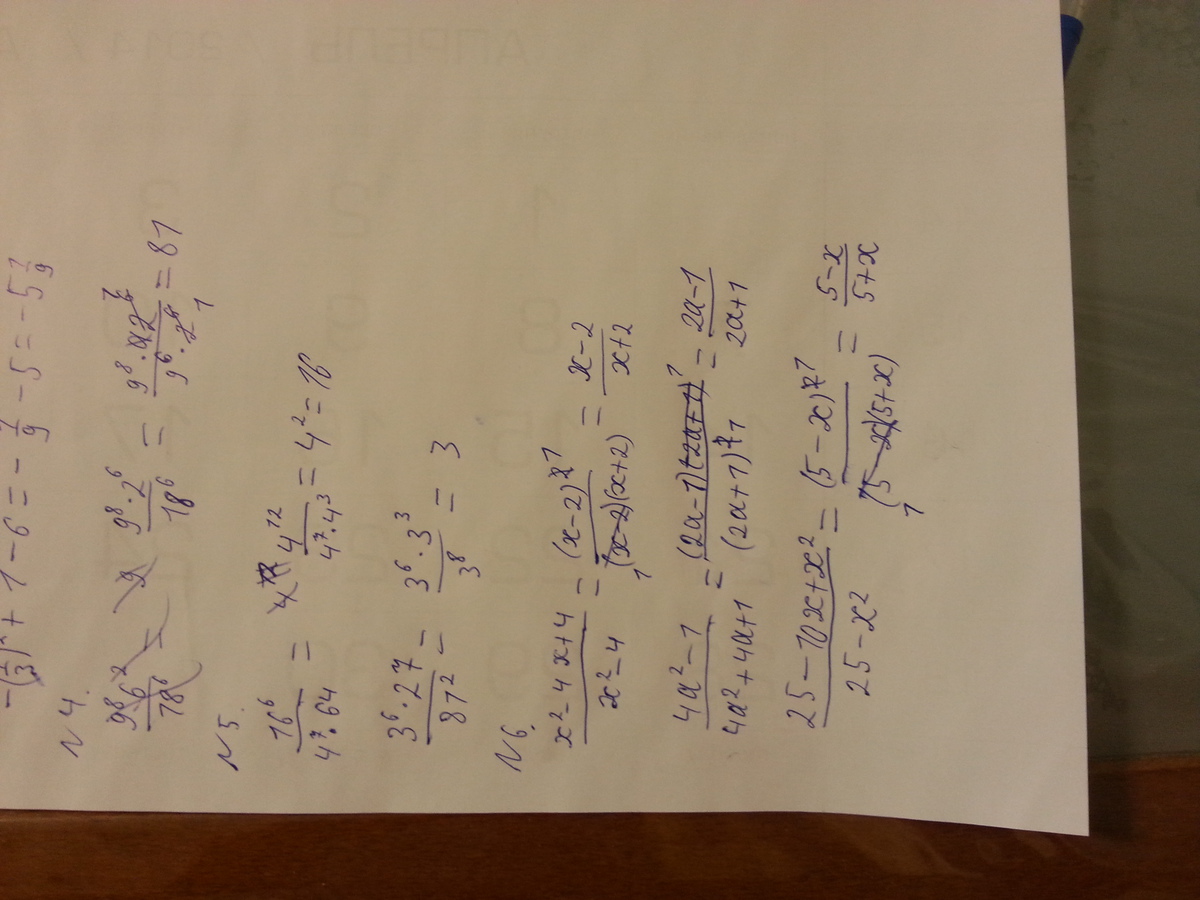 -(1/3)² + 1 - 6 = - 1/9 - 5 = - 5 1/9
N 4.
9⁸·2⁶/18⁶ = 9⁸·2⁶/9⁶·2⁶ = 81
N 5.
16⁶/4⁷·64 = 4¹²/4⁷·4³ = 4² = 16
3⁶·27/81² = 3⁶·3³/3⁸ = 3
N 6.
x²-4x+4/x²-4 = (x-2)²/(x-2)(x+2) = x-2/x+2
4a²-1/4a²+4a+1 = (2a-1)(2a+1)/(2a+1)² = 2a-1/2a+1
25-10x+x²/25-x² = (5-x)²/(5-x)(5+x) = 5-x/5+x